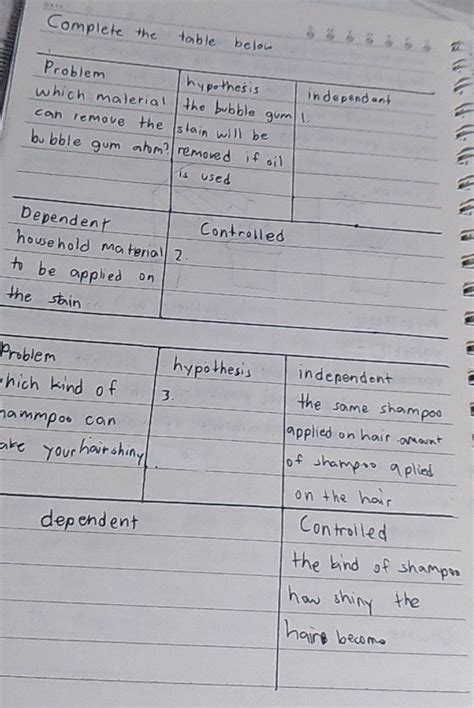 Complete the table below
Problem
which material
can remove the
bubble gum atom?
hypothesis
the bubble gum
stain will be
removed if oil
is used
independent
1.
Dependent
household material
to be applied on
the stain
Controlled
2.
Problem
which kind of
hammpoo can
ake your hair shiny
hypothesis
3.
independent
the same shampoo
applied on hair amount
of shampoo aplied
on the hair
dependent
Controlled
the kind of shampoo
how shiny the
hair become